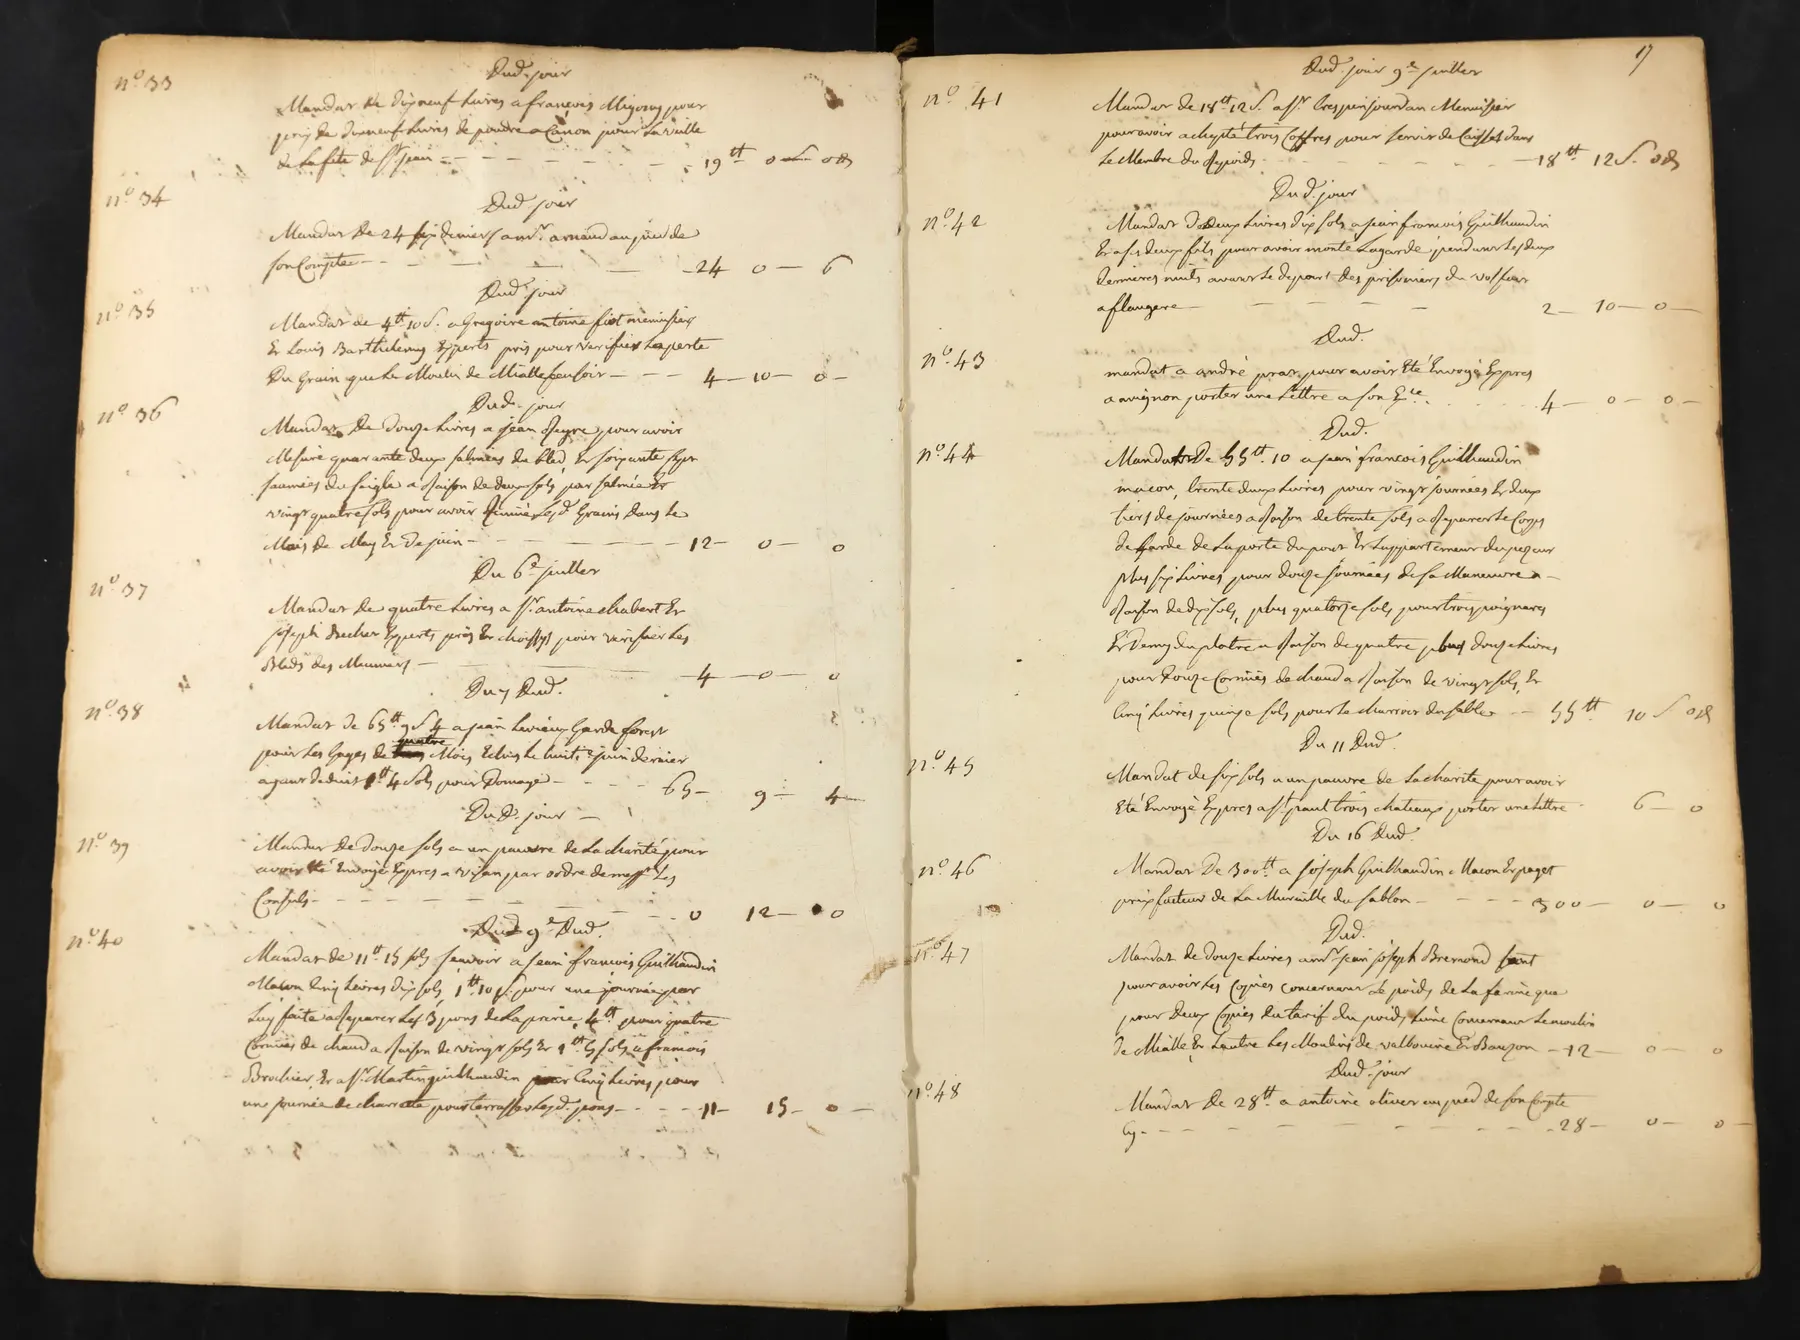 Dud. jour
n.º 33
Mandat De dixneuf Livres a françois Migong pour
prix de dixneuf Livres de poudre a Canon pour La veille
de La fete de St jean - - - 19tt 0 s 0 d
Dud. jour
n.º 34
Mandat De 24 six deniers a mr. arnaud au pied de
son Compte - - - 24 0 - 6
Dud. jour
n.º 35
Mandat de 4tt 10 s. a Gregoire antoine fiot menuisier
Et Louis Barthelemy Experts pris pour verifier La perte
Du Grain que le Moulin de Mialle faisoir - - - 4 - 10 - 0 -
Dud. jour
n.º 36
Mandat De Douze Livres a jean Reyre pour avoir
Mesuré quarante deux salmées du bled, Et soixante sept
saumées du seigle a Raison de deux sols par salmée Et
vingt quatre sols pour avoir Remué Lesd. Grains Dans le
Mois De May Et De juin - - - 12 - 0 - 0
Du 6e juillet
n.º 37
Mandat De quatre Livres a sr. antoine chabert Et
joseph Becher Experts pris Et choisis pour verifier Les
Bleds des Meuniers - - - 4 - 0 - 0
Du 7 Dud.
n.º 38
Mandat de 65tt 9 s 4 a jean Levieux Garde forest
pour Les Gages de quatre Mois Echus Le huite juin dernier
ayant deduit 1tt 4 sols pour Domage - - - 65 - 9 - 4
Dud. jour
n.º 39
Mandat De Douze sols a un pauvre de La charité pour
avoir Eté Envoyé Expres a visan par ordre de messrs Les
Consuls - - - 0 12 - 0
Dud 9e Dud.
n.º 40
Mandat de 11tt 15 sols sçavoir a jean francois Guilhaudin
Macon Cinq Livres Dix sols, 1tt 10 s. pour une journée par
Luy faite a Reparer Les 3 pons de La prerie, 4tt pour quatre
Cornües de chaud a Raison de vingt sols Et 1tt 5 sols a francois
Brochier, Et a sr. Martin guilhaudin Cinq Livres pour
une journée de charrette pour terrasser Lesd. pons - - - 11 - 15 - 0 -
17
Dud. jour 9e juillet
n.º 41
Mandat de 18tt 12 s. a sr. Crespin jourdan Menuisier
pour avoir achepté trois Coffres pour servir de Caisses dans
Le Membre du Repoids - - - 18tt 12 s. 0 d
Dud. jour
n.º 42
Mandat De Deux Livres Dix sols a jean francois Guilhaudin
Et a ses deux fils pour avoir monté La garde pendant Les deux
Dernieres nuits avant Le Depart des prisonniers du
a - - - 2 - 10 - 0 -
Dud.
n.º 43
mandat a andré praz pour avoir Eté Envoyé Expres
a avignon porter une Lettre a son Ece. - - - 4 - 0 - 0 -
Dud.
n.º 44
Mandat De 55tt. 10 a jean francois Guilhaudin
macon, trente deux Livres pour vingt journées Et deux
tiers de journées a Raison de trente sols a Reparer Le Corps
de Garde de La porte du pont Et L'appartement du pezeur
plus six Livres pour douze journées de sa Maneuvre a
Raison de dix sols, plus quatorze sols pour trois poignares
Et Demy du platre a Raison de quatre plus douze Livres
pour Douze Cornües de chaud a Raison de vingt sols, Et
Cinq Livres quinze sols pour Le charroir du sable - - 55tt 10 s 0 d
Du 11 Dud.
n.º 45
Mandat de six sols a un pauvre de La charité pour avoir
Eté Envoyé Expres a st. paul trois chateaux porter une Lettre - 6 - 0
Du 16 Dud.
n.º 46
Mandat De 300tt a joseph Guilhaudin Macon Et paget
prixfacteur de La Muraille du sablon - - - 300 - 0 - 0
Dud.
n.º 47
Mandat de Douze Livres a mr jean joseph Bremond
pour avoir Les Copies concernant Le poids de La farine que
pour Deux Copies du tarif du poids Lune Concernant Le moulin
de Mialle, Et Lautre Les Moulins de valbouine Et Bauzon - 12 - 0 - 0
Dud. jour
n.º 48
Mandat De 28tt a antoine olivier au pied de son Compte
Cy - - - 28 - 0 - 0 -